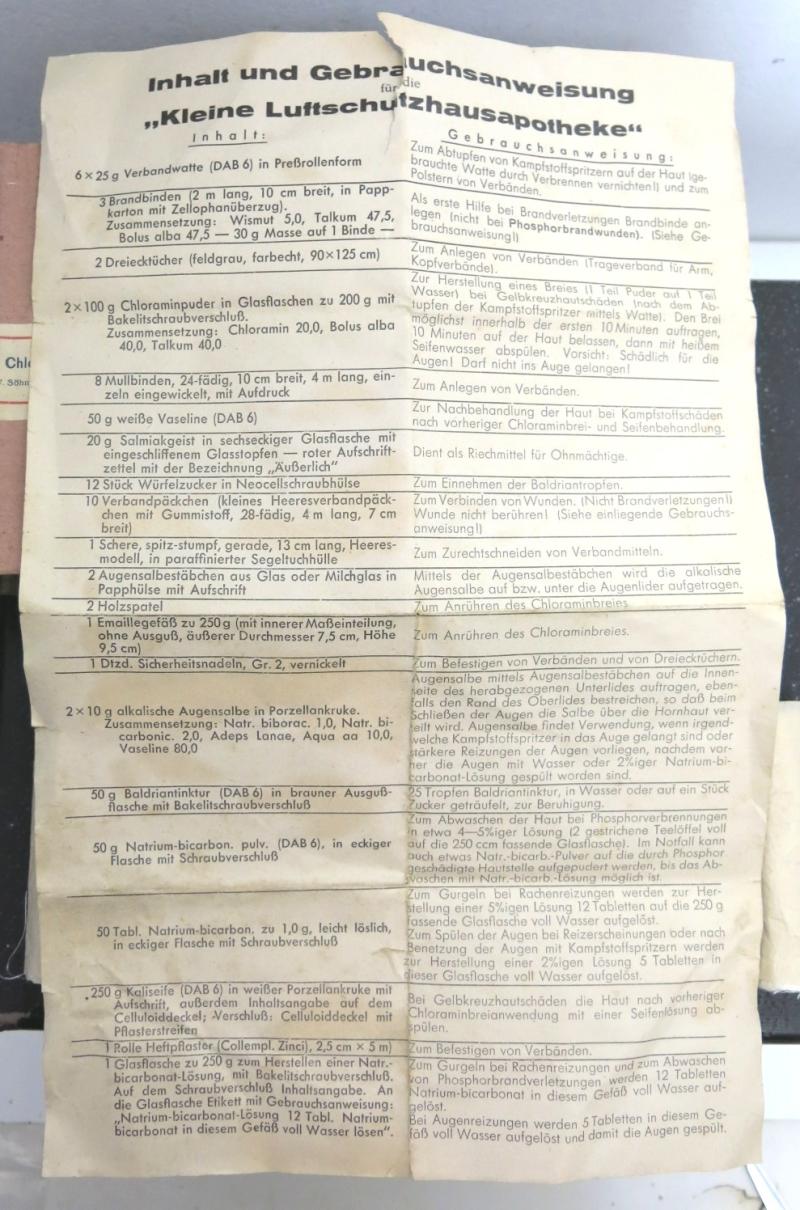 Inhalt und Gebrauchsanweisung
für die
„Kleine Luftschutzhausapotheke“
Inhalt:
Gebrauchsanweisung:
6 × 25 g Verbandwatte (DAB 6) in Preßrollenform
Zum Abtupfen von Kampfstoffspritzern auf der Haut (ge-
brauchte Watte durch Verbrennen vernichten!) und zum
Polstern von Verbänden.
3 Brandbinden (2 m lang, 10 cm breit, in Papp-
karton mit Zellophanüberzug).
Zusammensetzung: Wismut 5,0, Talkum 47,5,
Bolus alba 47,5 — 30 g Masse auf 1 Binde —
Als erste Hilfe bei Brandverletzungen Brandbinde an-
legen (nicht bei Phosphorbrandwunden). (Siehe Ge-
brauchsanweisung!)
2 Dreiecktücher (feldgrau, farbecht, 90×125 cm)
Zum Anlegen von Verbänden (Trageverband für Arm,
Kopfverbände).
2×100 g Chloraminpuder in Glasflaschen zu 200 g mit
Bakelitschraubverschluß.
Zusammensetzung: Chloramin 20,0, Bolus alba
40,0, Talkum 40,0
Zur Herstellung eines Breies (1 Teil Puder auf 1 Teil
Wasser) bei Gelbkreuzhautschäden (nach dem Ab-
tupfen der Kampfstoffspritzer mittels Watte). Den Brei
möglichst innerhalb der ersten 10 Minuten auftragen,
10 Minuten auf der Haut belassen, dann mit heißem
Seifenwasser abspülen. Vorsicht: Schädlich für die
Augen! Darf nicht ins Auge gelangen!
8 Mullbinden, 24-fädig, 10 cm breit, 4 m lang, ein-
zeln eingewickelt, mit Aufdruck
Zum Anlegen von Verbänden.
50 g weiße Vaseline (DAB 6)
Zur Nachbehandlung der Haut bei Kampfstoffschäden
nach vorheriger Chloraminbrei- und Seifenbehandlung.
20 g Salmiakgeist in sechseckiger Glasflasche mit
eingeschliffenem Glasstopfen — roter Aufschrift-
zettel mit der Bezeichnung „Äußerlich“
Dient als Riechmittel für Ohnmächtige.
12 Stück Würfelzucker in Neocellschraubhülse
Zum Einnehmen der Baldriantropfen.
10 Verbandpäckchen (kleines Heeresverbandpäck-
chen mit Gummistoff, 28-fädig, 4 m lang, 7 cm
breit)
Zum Verbinden von Wunden. (Nicht Brandverletzungen!)
Wunde nicht berühren! (Siehe einliegende Gebrauchs-
anweisung!)
1 Schere, spitz-stumpf, gerade, 13 cm lang, Heeres-
modell, in paraffinierter Segeltuchhülle
Zum Zurechtschneiden von Verbandmitteln.
2 Augensalbestäbchen aus Glas oder Milchglas in
Papphülse mit Aufschrift
Mittels der Augensalbestäbchen wird die alkalische
Augensalbe auf bzw. unter die Augenlider aufgetragen.
2 Holzspatel
Zum Anrühren des Chloraminbreies
1 Emaillegefäß zu 250 g (mit innerer Maßeinteilung,
ohne Ausguß, äußerer Durchmesser 7,5 cm, Höhe
9,5 cm)
Zum Anrühren des Chloraminbreies.
1 Dtzd. Sicherheitsnadeln, Gr. 2, vernickelt
Zum Befestigen von Verbänden und von Dreiecktüchern.
2×10 g alkalische Augensalbe in Porzellankruke.
Zusammensetzung: Natr. biborac. 1,0, Natr. bi-
carbonic. 2,0, Adeps Lanae, Aqua aa 10,0,
Vaseline 80,0
Augensalbe mittels Augensalbestäbchen auf die Innen-
seite des herabgezogenen Unterlides auftragen, eben-
falls den Rand des Oberlides bestreichen, so daß beim
Schließen der Augen die Salbe über die Hornhaut ver-
teilt wird. Augensalbe findet Verwendung, wenn irgend-
welche Kampfstoffspritzer in das Auge gelangt sind oder
stärkere Reizungen der Augen vorliegen, nachdem vor-
her die Augen mit Wasser oder 2%iger Natrium-bi-
carbonat-Lösung gespült worden sind.
50 g Baldriantinktur (DAB 6) in brauner Ausguß-
flasche mit Bakelitschraubverschluß
25 Tropfen Baldriantinktur, in Wasser oder auf ein Stück
Zucker geträufelt, zur Beruhigung.
50 g Natrium-bicarbon. pulv. (DAB 6), in eckiger
Flasche mit Schraubverschluß
Zum Abwaschen der Haut bei Phosphorverbrennungen
in etwa 4—5%iger Lösung (2 gestrichene Teelöffel voll
auf die 250 ccm fassende Glasflasche). Im Notfall kann
auch etwas Natr.-bicarb.-Pulver auf die durch Phosphor
geschädigte Hautstelle aufgepudert werden, bis das Ab-
waschen mit Natr.-bicarb.-Lösung möglich ist.
50 Tabl. Natrium-bicarbon. zu 1,0 g, leicht löslich,
in eckiger Flasche mit Schraubverschluß
Zum Gurgeln bei Rachenreizungen werden zur Her-
stellung einer 5%igen Lösung 12 Tabletten auf die 250 g
fassende Glasflasche voll Wasser aufgelöst.
Zum Spülen der Augen bei Reizerscheinungen oder nach
Benetzung der Augen mit Kampfstoffspritzern werden
zur Herstellung einer 2%igen Lösung 5 Tabletten in
dieser Glasflasche voll Wasser aufgelöst.
250 g Kaliseife (DAB 6) in weißer Porzellankruke mit
Aufschrift, außerdem Inhaltsangabe auf dem
Celluloiddeckel; Verschluß: Celluloiddeckel mit
Pflasterstreifen
Bei Gelbkreuzhautschäden die Haut nach vorheriger
Chloraminbreianwendung mit einer Seifenlösung ab-
spülen.
1 Rolle Heftpflaster (Collempl. Zinci), 2,5 cm × 5 m)
Zum Befestigen von Verbänden.
1 Glasflasche zu 250 g zum Herstellen einer Natr.-
bicarbonat-Lösung, mit Bakelitschraubverschluß.
Auf dem Schraubverschluß Inhaltsangabe. An
die Glasflasche Etikett mit Gebrauchsanweisung:
„Natrium-bicarbonat-Lösung 12 Tabl. Natrium-
bicarbonat in diesem Gefäß voll Wasser lösen“.
Zum Gurgeln bei Rachenreizungen und zum Abwaschen
von Phosphorbrandverletzungen werden 12 Tabletten
Natrium-bicarbonat in diesem Gefäß voll Wasser auf-
gelöst.
Bei Augenreizungen werden 5 Tabletten in diesem Ge-
fäß voll Wasser aufgelöst und damit die Augen gespült.
Chl